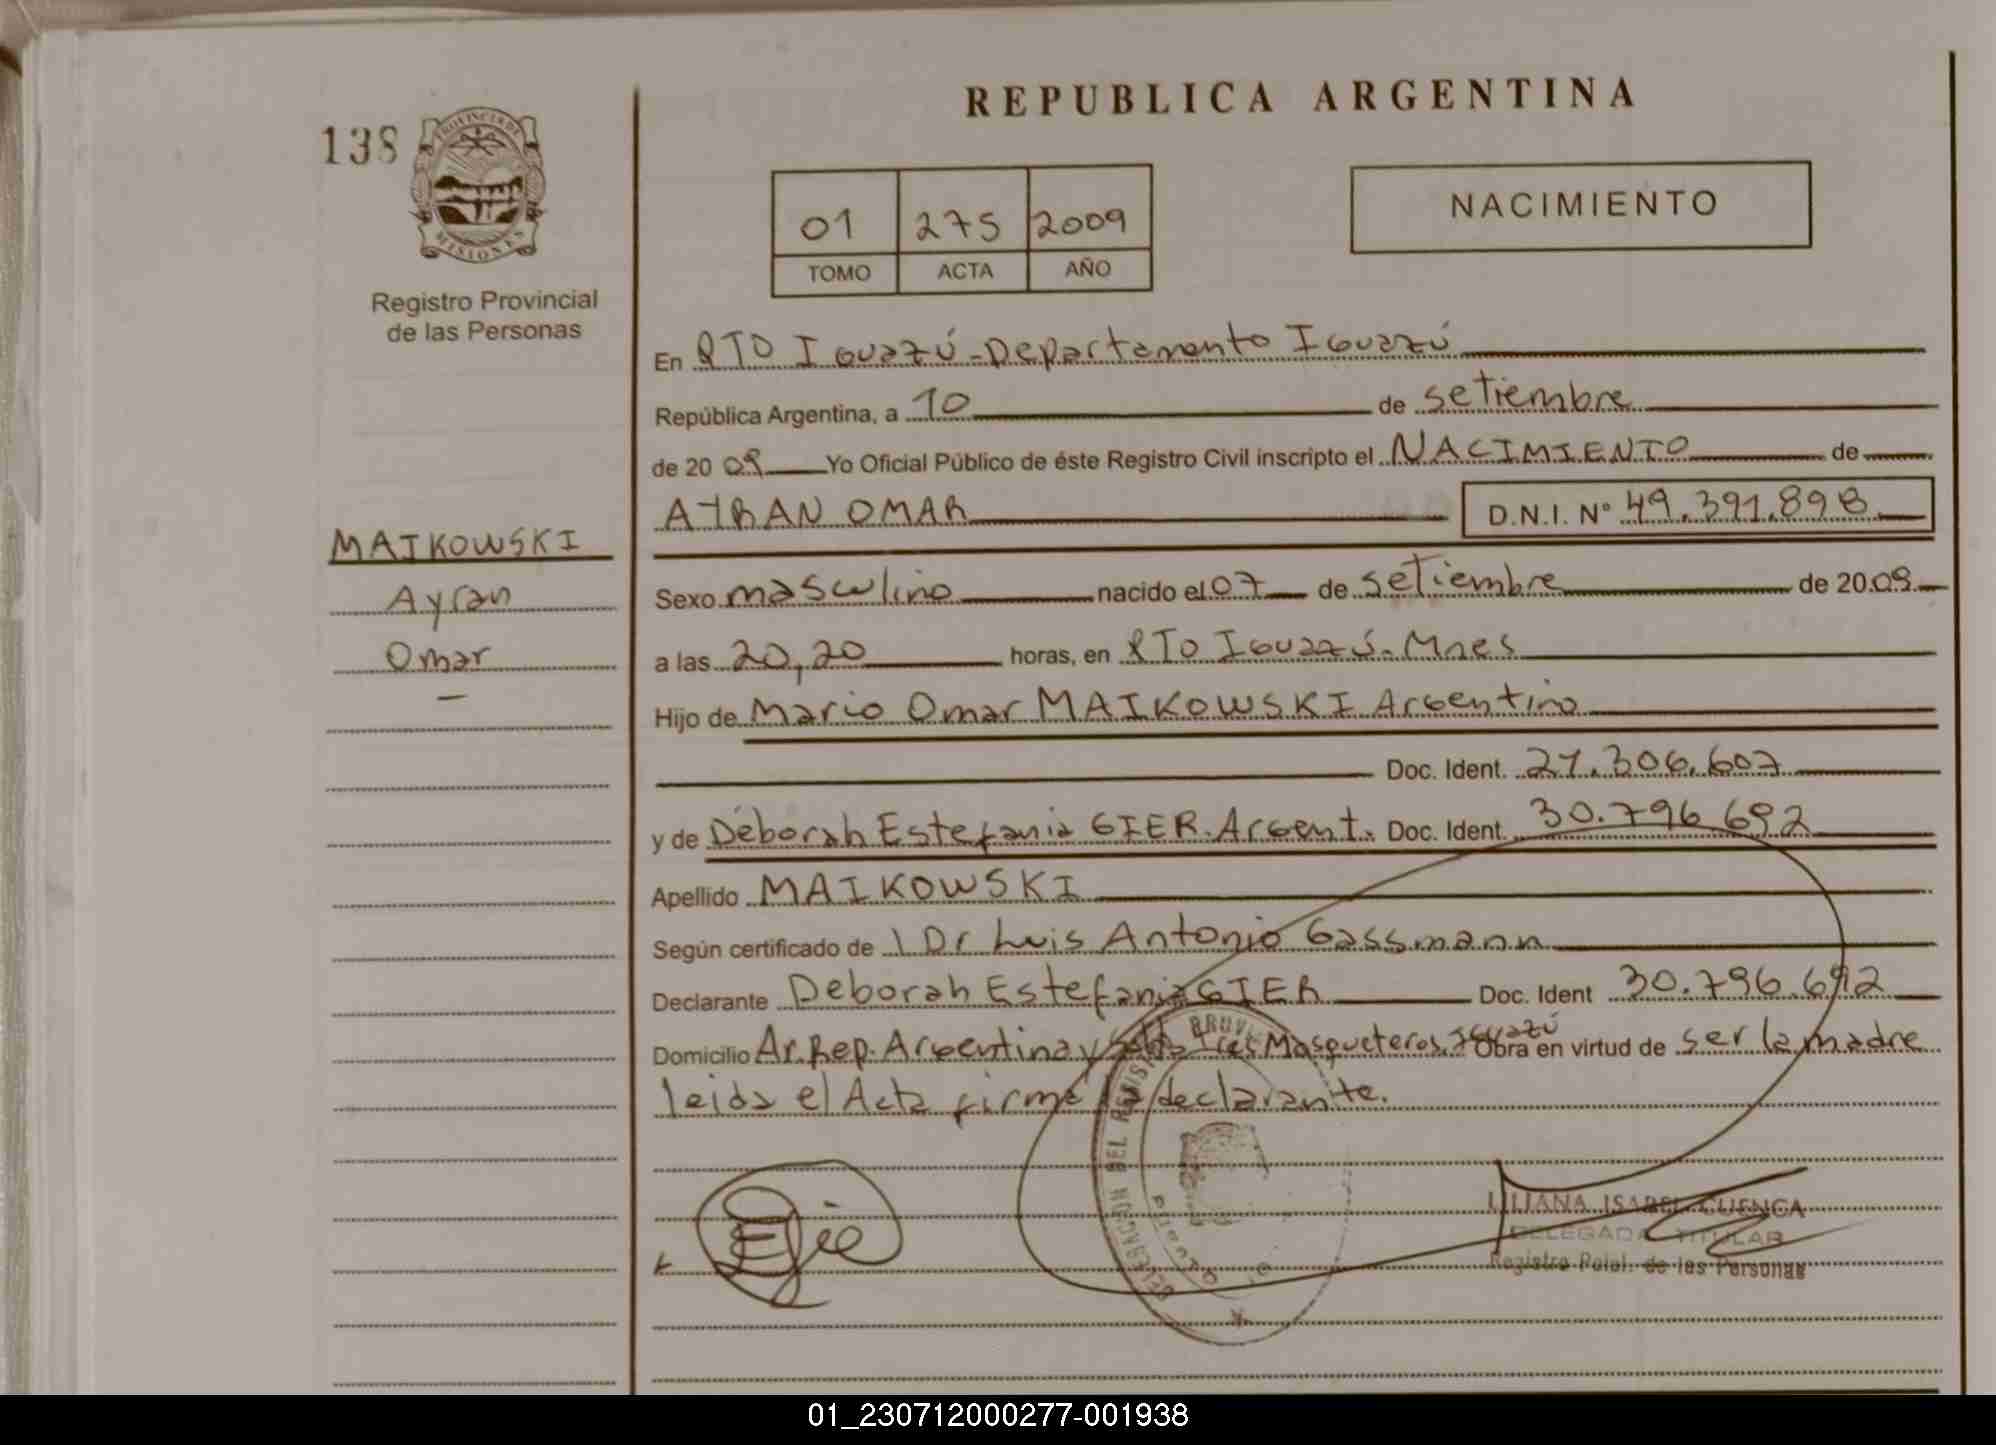 REPUBLICA ARGENTINA
138
PROVINCIA DE
MISIONES
Registro Provincial
de las Personas
01 275 2009
TOMO ACTA AÑO
NACIMIENTO
En PTO Iguazú-Departamento Iguazú
República Argentina, a 10 de setiembre
de 20 09 Yo Oficial Público de éste Registro Civil inscripto el NACIMIENTO de
AYRAN OMAR D.N.I. Nº 49.391.898
MAIKOWSKI
Ayran
Omar
Sexo masculino nacido el 07 de setiembre de 20 09
a las 20,20 horas, en PTO Iguazú-Mnes
Hijo de Mario Omar MAIKOWSKI Argentino
Doc. Ident. 21.306.607
y de Déborah Estefania GIER. Argent. Doc. Ident. 30.796 692
Apellido MAIKOWSKI
Según certificado de l Dr Luis Antonio Gassmann
Declarante Deborah Estefania GIER Doc. Ident 30.796.692
Domicilio Av. Rep. Argentina y Tres Mosqueteros. Iguazú Obra en virtud de ser la madre
leida el Acta firma la declarante.
LILIANA ISABEL CUENCA
DELEGADA TITULAR
Registro Pcial. de las Personas
01_230712000277-001938